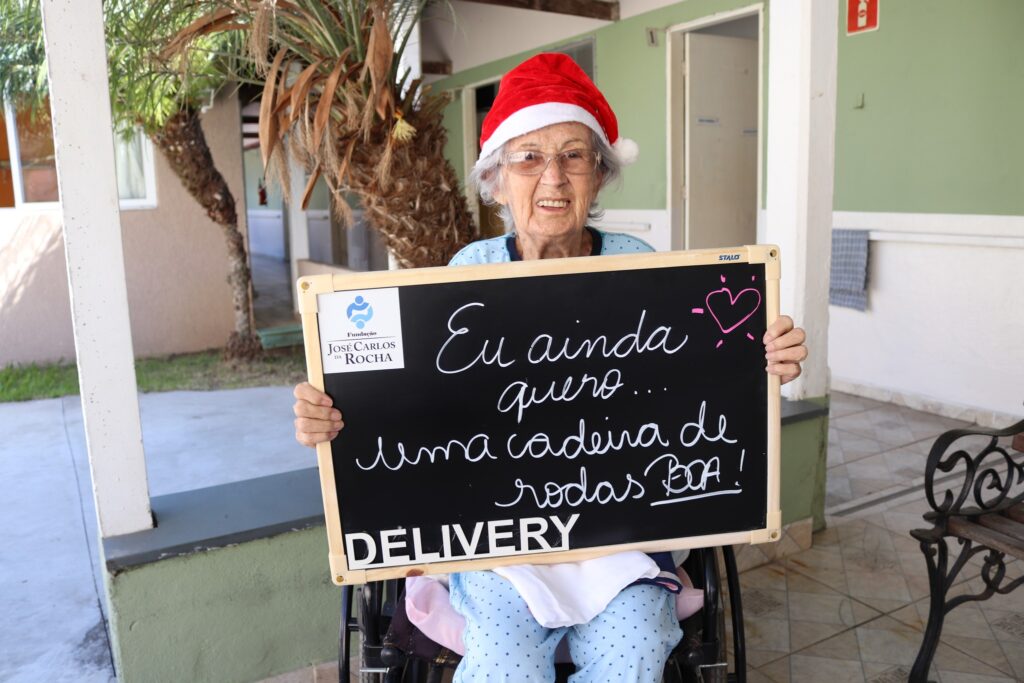 STALO
Fundação
JOSÉ CARLOS
DA ROCHA
Eu ainda
quero...
uma cadeira de
rodas BOA!
DELIVERY